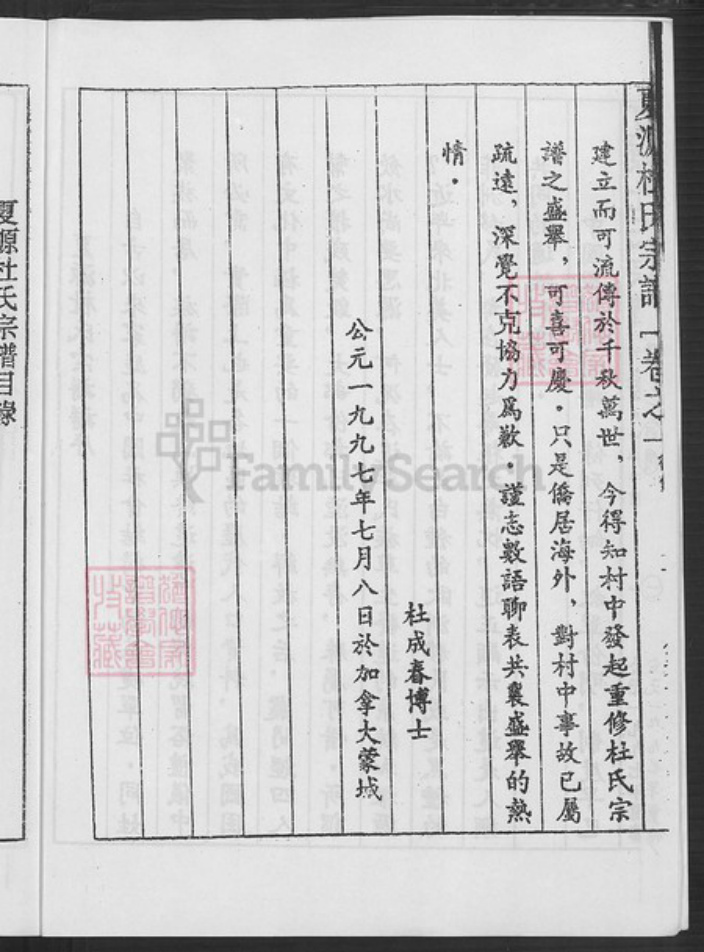 夏源杜氏宗譜 卷之一
建立而可流傳於千秋萬世，今得知村中發起重修杜氏宗
譜之盛舉，可喜可慶。只是僑居海外，對村中事故已屬
疏遠，深覺不克協力爲歉。謹志數語聊表共襄盛舉的熱
情。
杜成春博士
公元一九九七年七月八日於加拿大蒙城
夏源杜氏宗譜目錄
FamilySearch